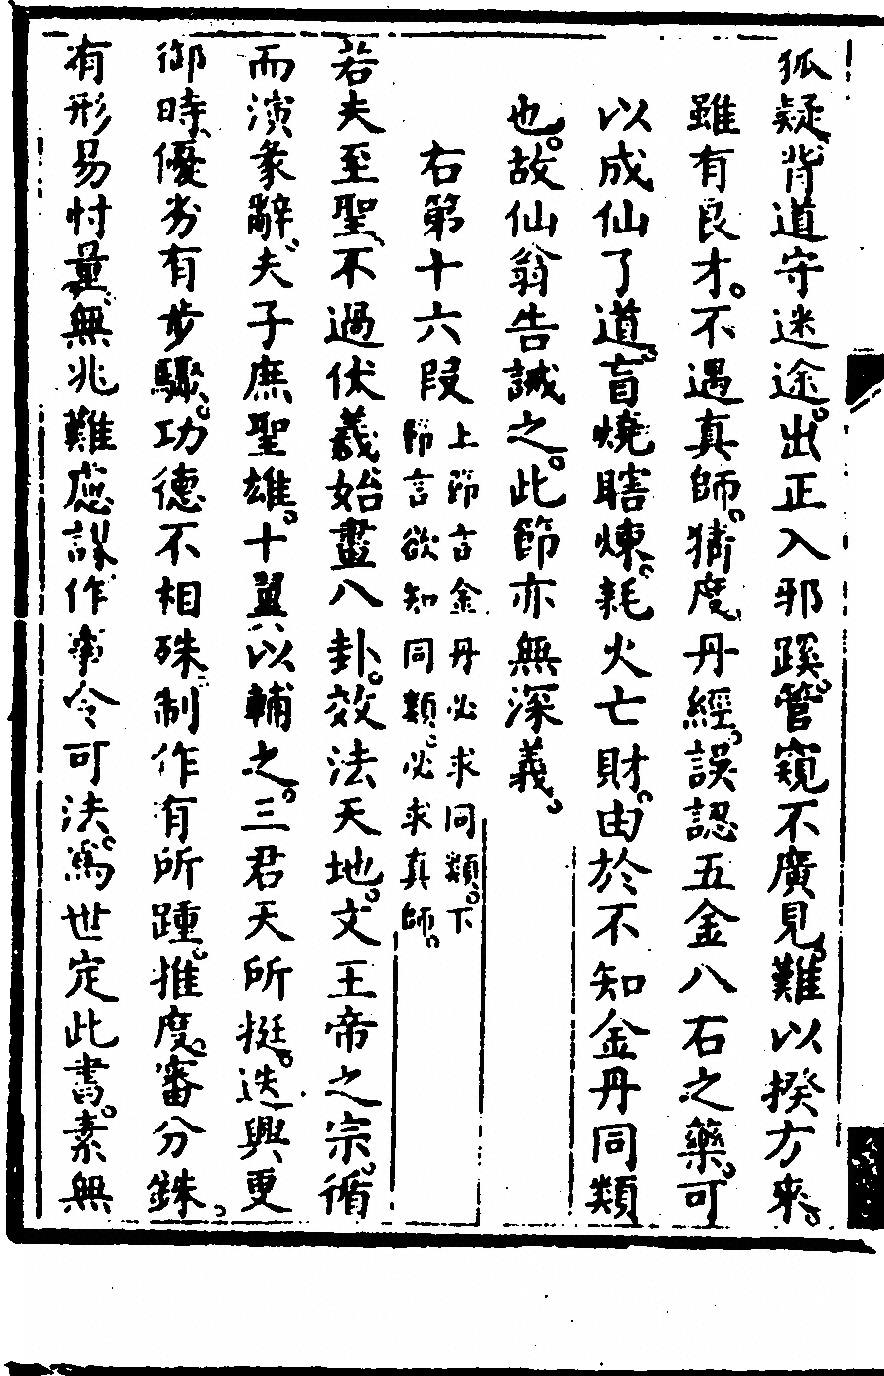 狐疑。背道守迷途。出正入邪蹊。管窺不廣見。難以揆方來。
雖有良才。不遇真師。猜度丹經。誤認五金八石之藥。可
以成仙了道。盲燒瞎煉。耗火亡財。由於不知金丹同類
也。故仙翁告誡之。此節亦無深義。
右第十六段
上節言金丹必求同類。下
節言欲知同類。必求真師。
若夫至聖。不過伏羲。始畫八卦。效法天地。文王帝之宗。循
而演彖辭。夫子庶聖雄。十翼以輔之。三君天所挺。迭興更
御時。優劣有步驟。功德不相殊。制作有所踵。推度審分銖。
有形易忖量。無兆難慮謀。作事令可法。為世定此書。素無